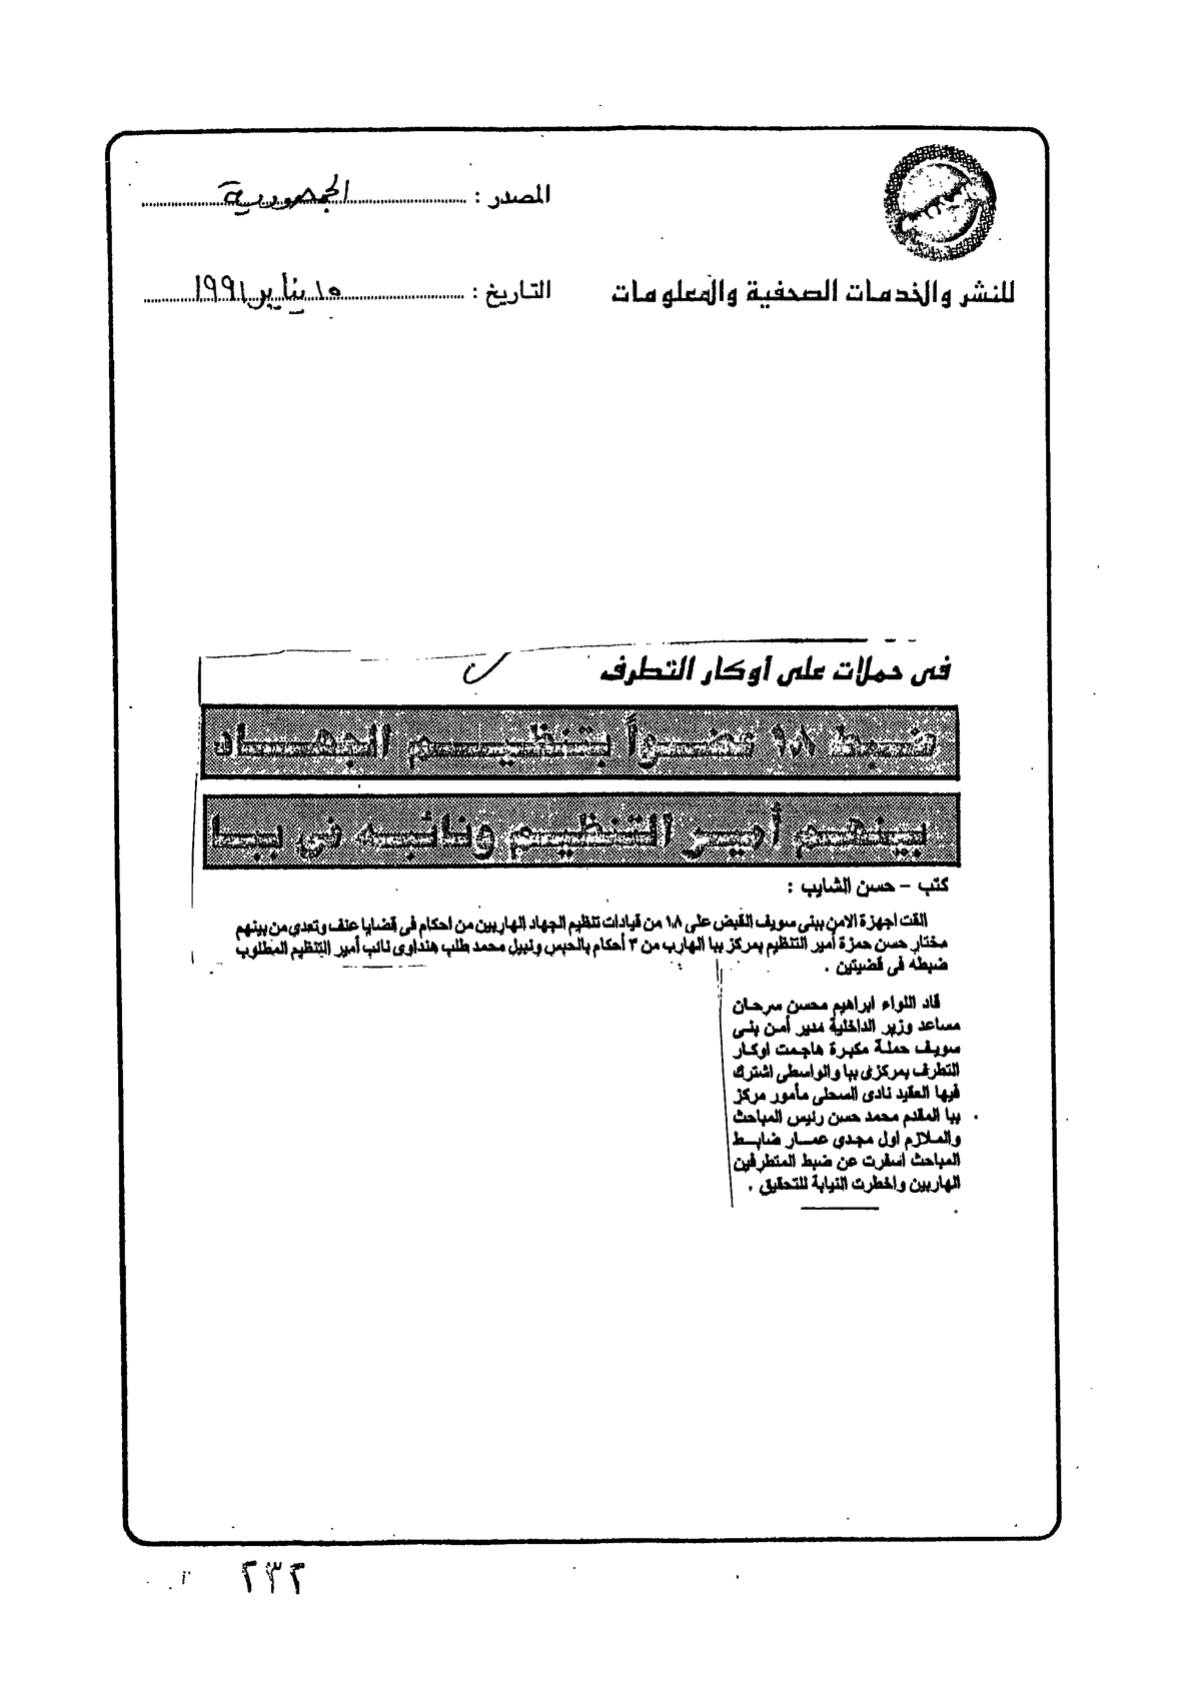 المصدر : الجمهورية
للنشر والخدمات الصحفية والمعلومات
التاريخ : ١٥ يناير ١٩٩١
فى حملات على أوكار التطرف
ضبط ١٨ عضواً بتنظيم الجهاد
بينهم أمير التنظيم ونائبه في ببا
كتب - حسن الشايب :
القت اجهزة الامن ببنى سويف القبض على ١٨ من قيادات تنظيم الجهاد الهاربين من احكام فى قضايا عنف وتعدي من بينهم
مختار حسن حمزة أمير التنظيم بمركز ببا الهارب من ٣ أحكام بالحبس ونبيل محمد طلب هنداوى نائب أمير التنظيم المطلوب
ضبطه فى قضيتين .
قاد اللواء ابراهيم محسن سرحان
مساعد وزير الداخلية مدير أمن بنى
سويف حملة مكبرة هاجمت اوكار
التطرف بمركزى ببا والواسطى اشترك
فيها العقيد نادى السحلى مأمور مركز
ببا المقدم محمد حسن رئيس المباحث
والملازم اول مجدي عمار ضابط
المباحث اسفرت عن ضبط المتطرفين
الهاربين واخطرت النيابة للتحقيق .
٢٣٢